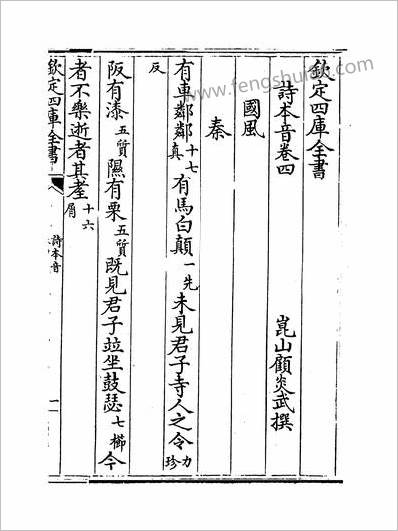 欽定四庫全書
詩本音卷四
崑山顧炎武撰
國風
秦
有車鄰鄰十七真有馬白顛一先未見君子寺人之令力珍
反
阪有漆五質隰有栗五質既見君子並坐鼓瑟七櫛今
者不樂逝者其耋十六屑
欽定四庫全書
詩本音